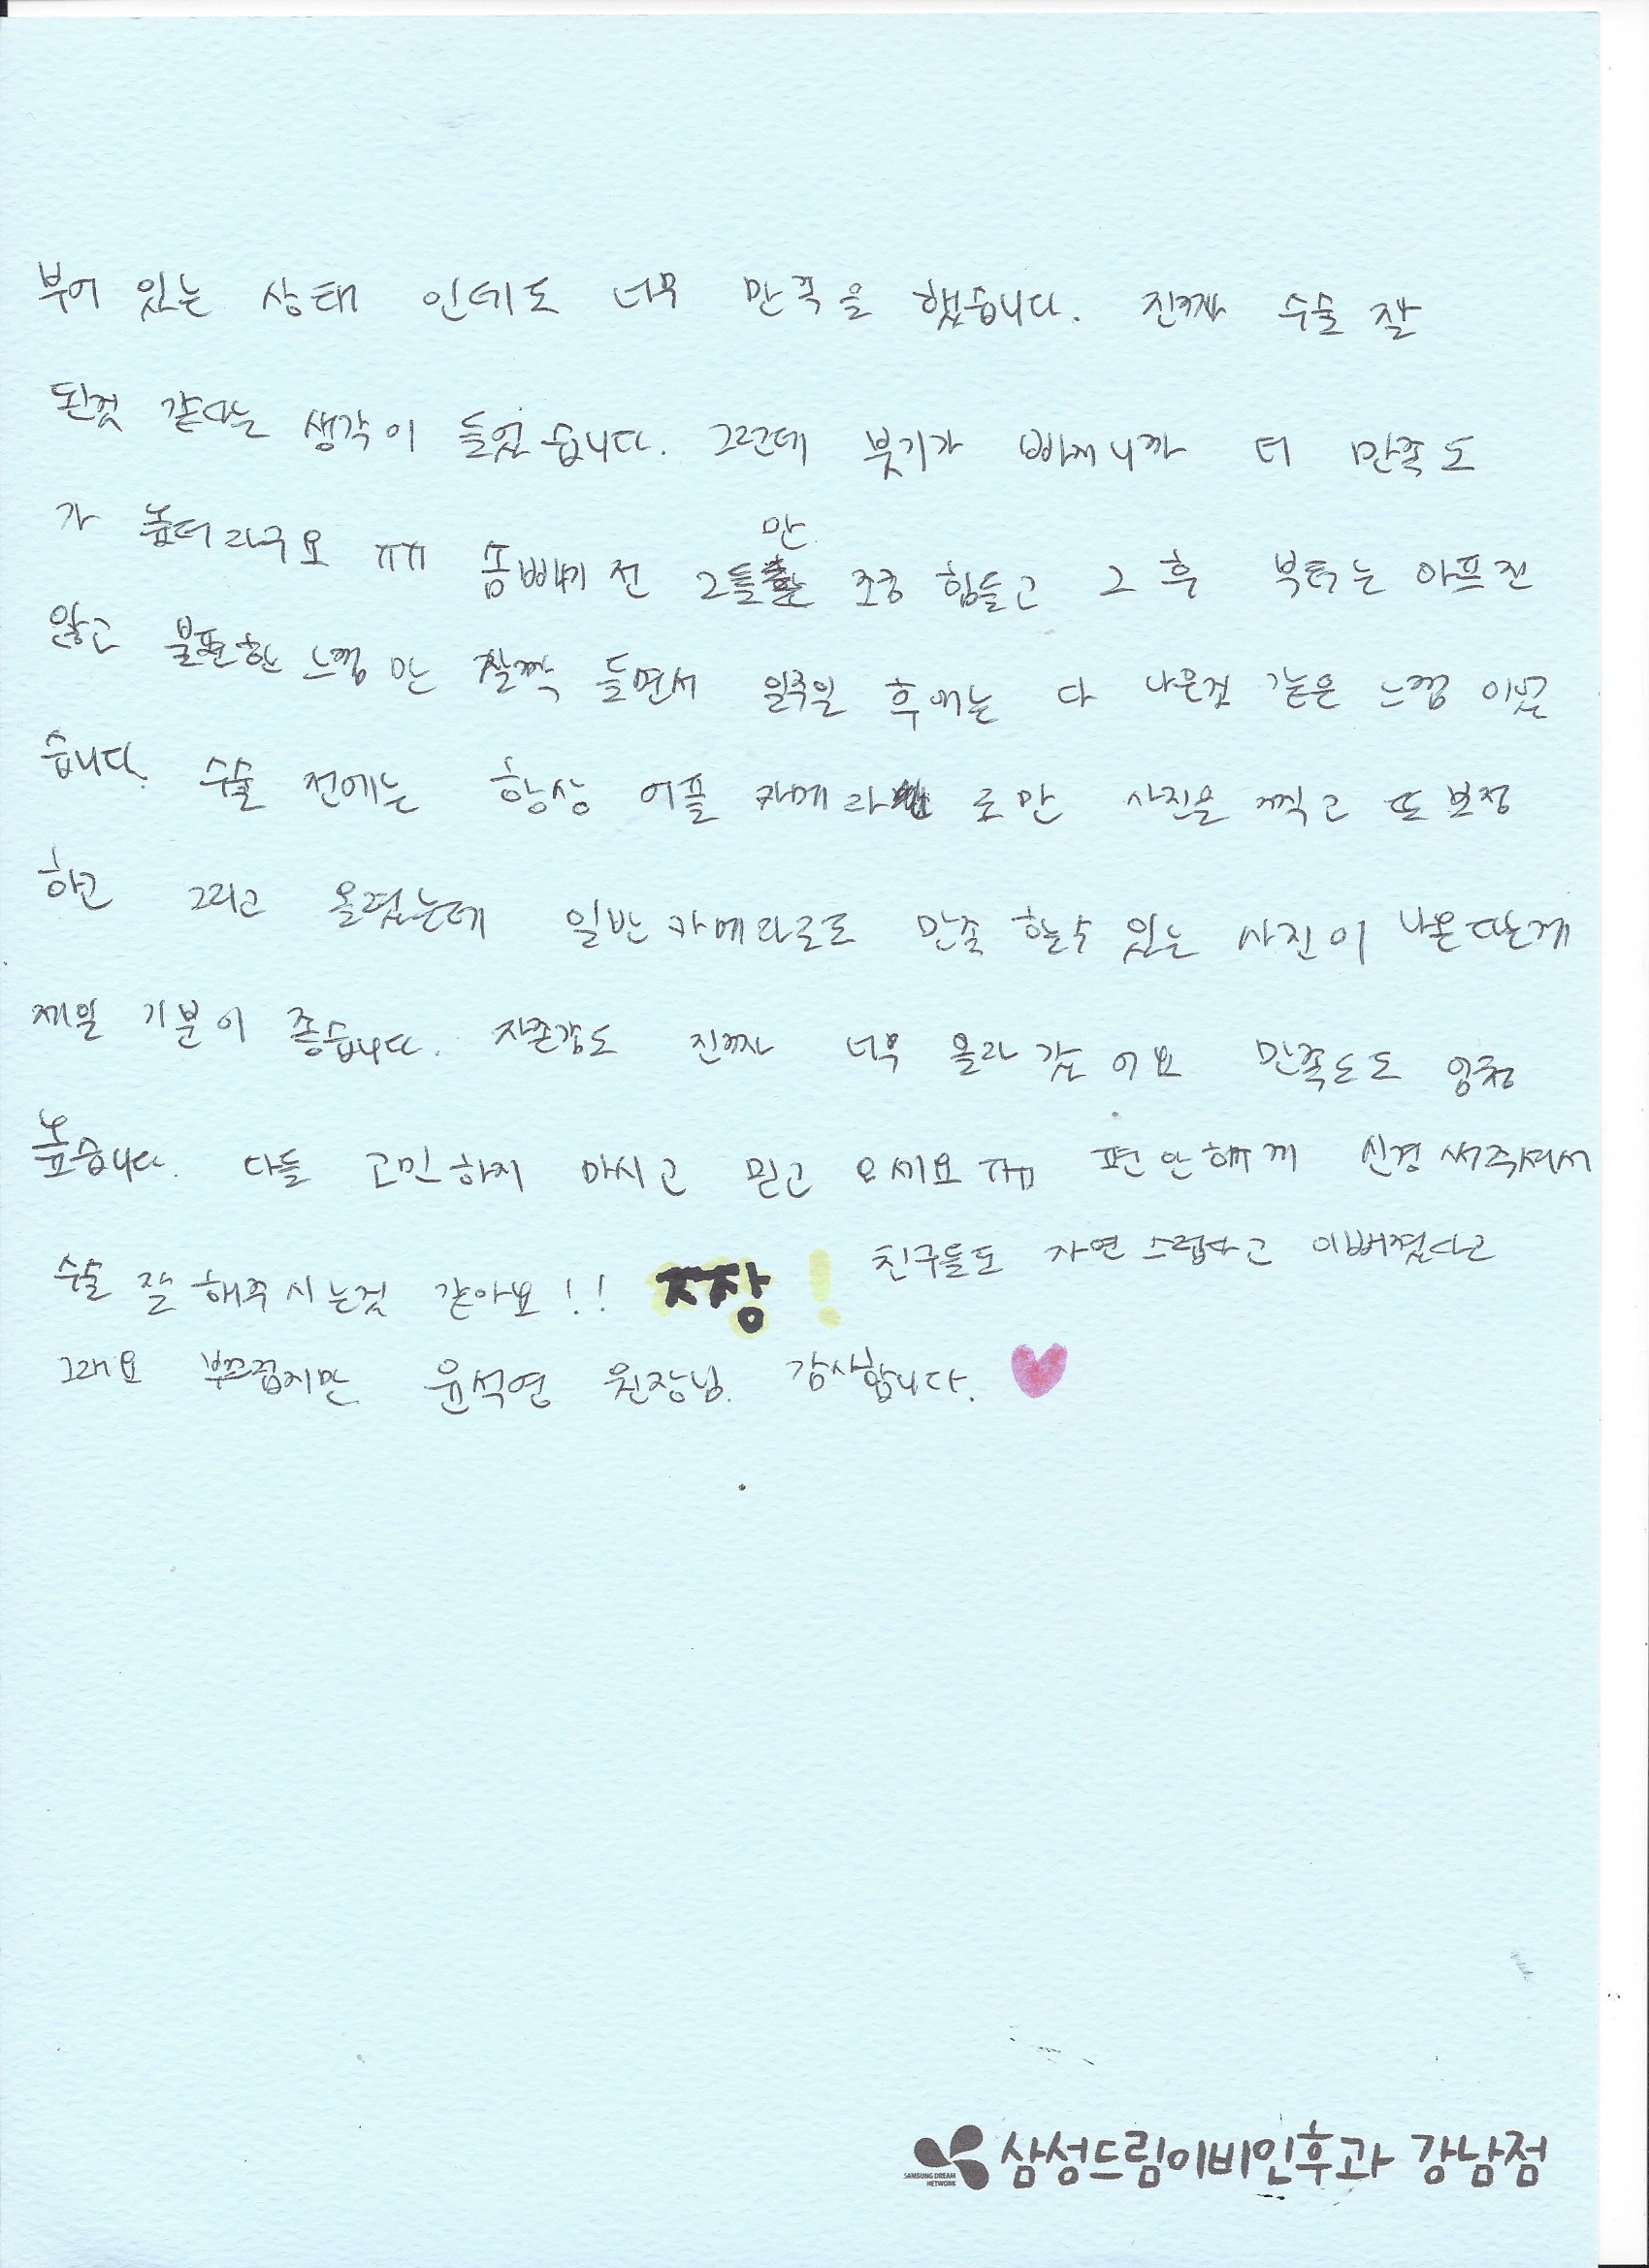 부어 있는 상태 인데도 너무 만족을 했습니다. 진짜 수술 잘
된것 같다는 생각이 들었습니다. 그런데 붓기가 빠지니까 더 만족도
가 높더라구요 ㅠㅠ 솜빼기 전 그들만 조중 힘들고 그 후 부터는 아프진
않고 불편한 느낌만 살짝 들면서 일주일 후에는 다 나은것 같은 느낌 이었
습니다. 수술 전에는 항상 어플 카메라로만 사진을 찍고 또 보정
하고 그리고 올렸는데 일반카메라로도 만족 할수 있는 사진이 나온다는게
제일 기분이 좋습니다. 자존감도 진짜 너무 올라갔어요 만족도도 엄청
높습니다. 다들 고민하지 마시고 믿고 오세요 ㅠㅠ 편안하게 신경써주셔서
수술 잘 해주시는것 같아요!! 짱! 친구들도 자연스럽다고 이뻐졌다고
그래요 부끄럽지만 윤석연 원장님. 감사합니다. ♥
삼성드림이비인후과 강남점
SAMSUNG DREAM
NETWORK